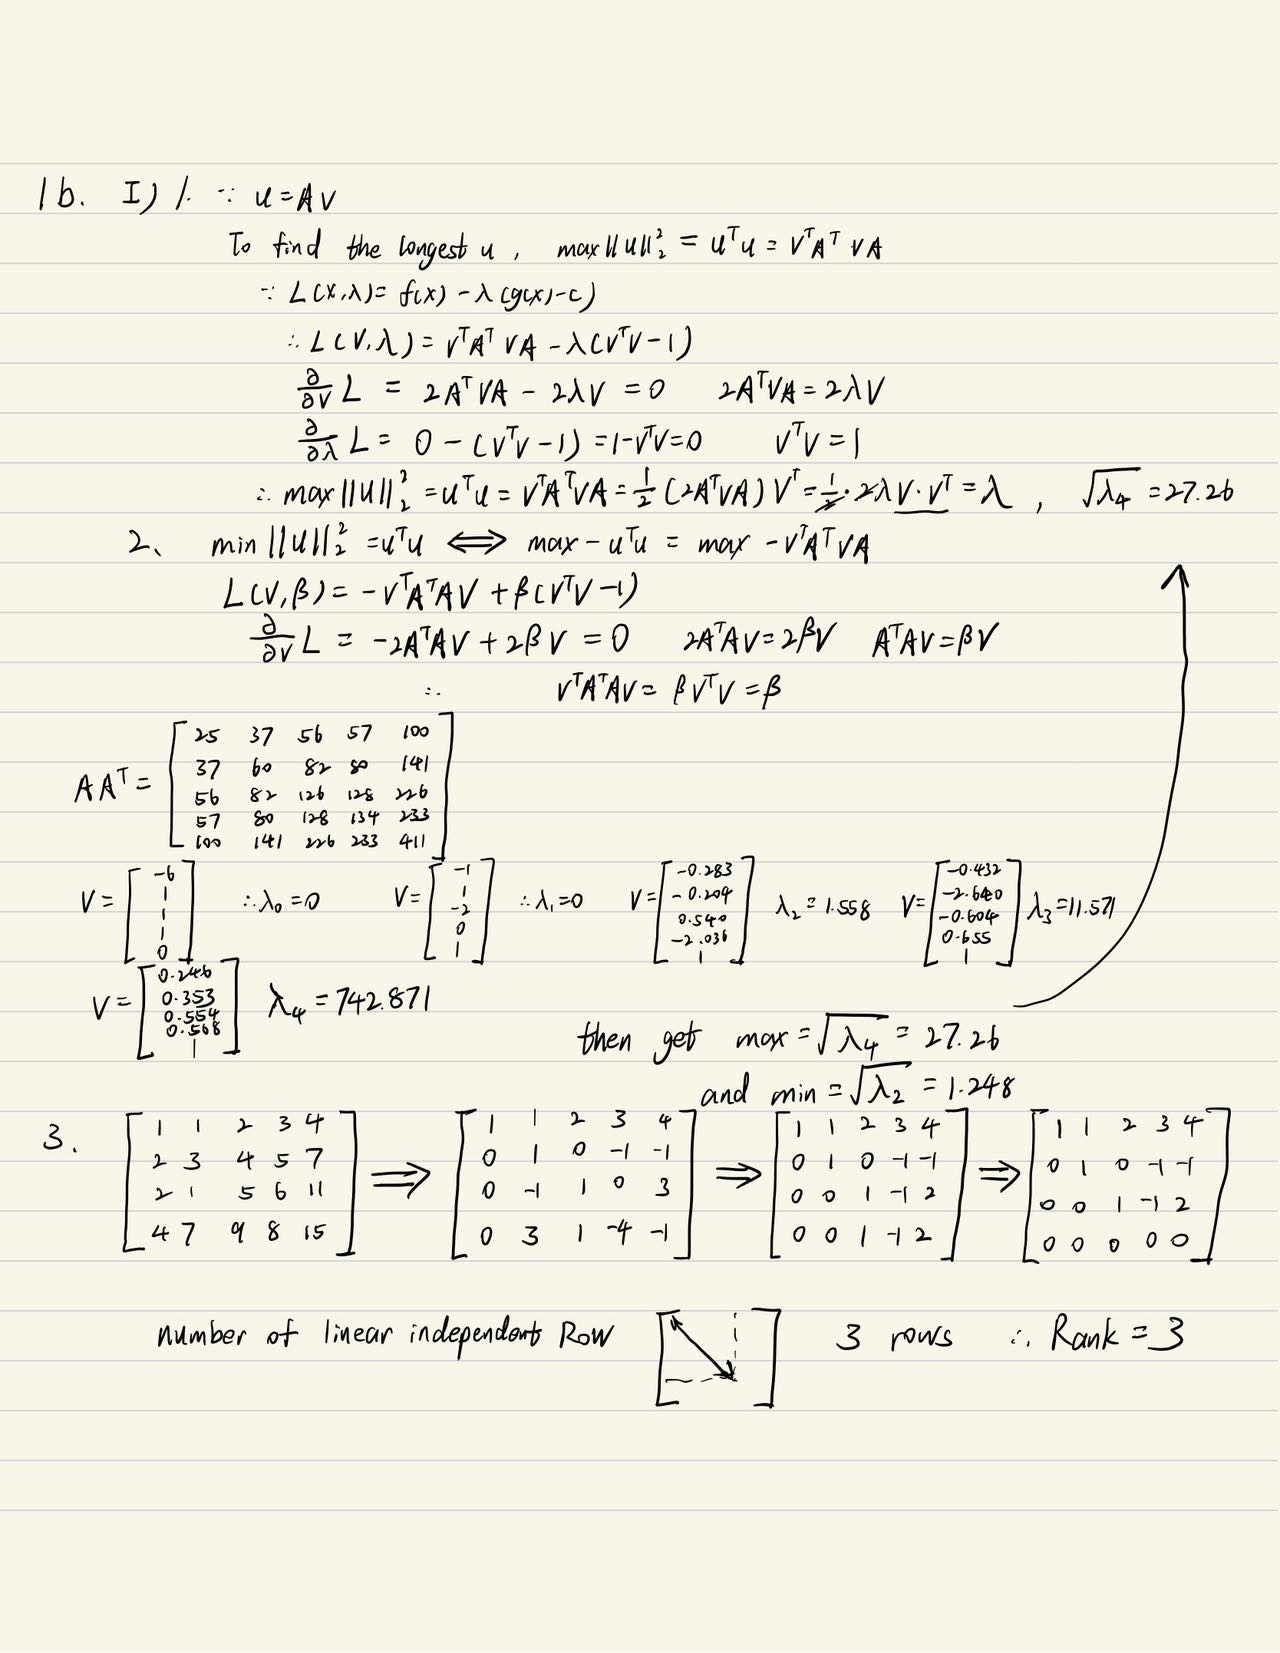 1b. I) 1. ∵ u = AV
To find the longest u, max||u||₂² = uᵀu = VᵀAᵀVA
∵ L(x,λ) = f(x) - λ(g(x)-c)
∴ L(V,λ) = VᵀAᵀVA - λ(VᵀV-1)
∂/∂V L = 2AᵀVA - 2λV = 0 2AᵀVA = 2λV
∂/∂λ L = 0 - (VᵀV-1) = 1-VᵀV = 0 VᵀV = 1
∴ max||u||₂² = uᵀu = VᵀAᵀVA = 1/2 (2AᵀVA)Vᵀ = 1/2 · 2λV·Vᵀ = λ , √λ₄ = 27.26
2、 min||u||₂² = uᵀu ⟺ max - uᵀu = max - VᵀAᵀVA
L(V,β) = -VᵀAᵀAV + β(VᵀV-1)
∂/∂V L = -2AᵀAV + 2βV = 0 2AᵀAV = 2βV AᵀAV = βV
∴ VᵀAᵀAV = βVᵀV = β
25 37 56 57 100
37 60 82 80 141
AAᵀ =
56 82 126 128 226
57 80 128 134 233
100 141 226 233 411
V = [-6 1 1 1 0] ∴ λ₀ = 0 V = [-1 1 -2 0 1] ∴ λ₁ = 0 V = [-0.283 -0.204 0.540 -2.036 1] λ₂ = 1.558 V = [-0.432 -2.640 -0.604 0.655 1] λ₃ = 11.571
V = [0.246 0.353 0.554 0.568 1] λ₄ = 742.871
then get max = √λ₄ = 27.26
and min = √λ₂ = 1.248
3. [1 1 2 3 4 ⟹ [1 1 2 3 4 ⟹ [1 1 2 3 4 ⟹ [1 1 2 3 4
2 3 4 5 7 0 1 0 -1 -1 0 1 0 -1 -1 0 1 0 -1 -1
2 1 5 6 11 0 -1 1 0 3 0 0 1 -1 2 0 0 1 -1 2
4 7 9 8 15] 0 3 1 -4 -1] 0 0 1 -1 2] 0 0 0 0 0]
number of linear independent Row [ ] 3 rows ∴ Rank = 3